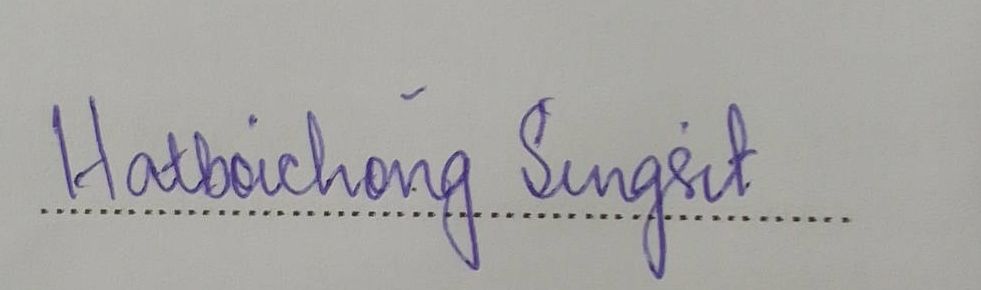 Hatboichong Singsit